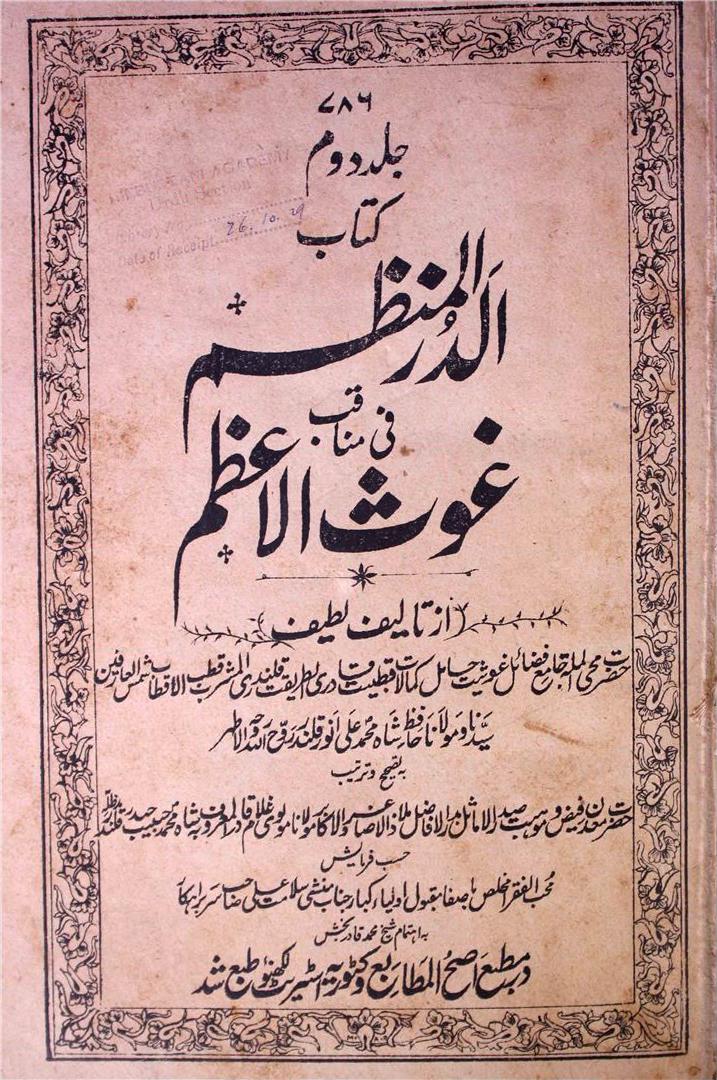 ۷۸۶
جلد دوم
کتاب
الدر المنظم
فی مناقب
غوث الاعظم
از تالیف لطیف
حضرت محی الملة جامع فضائل غوثیت حامل کمالات قطبیت قادری الطریقت قلندری المشرب قطب الاقطاب شمس العارفین
سیدنا و مولانا حافظ شاہ محمد علی انور قلندر روح اللہ روحہ الاطہر
بہ تصحیح و ترتیب
حضرت معدن فیض و موہبت صدر الاماثل بدر الافاضل ملاذ الاصاغر والاکابر مولانا مولوی غلام قادر المعروف بہ شاہ محمد حبیب حیدر قلندر مدظلہ
حسب فرمایش
محب الفقرا مخلص باصفا مقبول اولیاء کبار جناب منشی سلامت علی صاحب سربراہکار
بہ اہتمام شیخ محمد قادر بخش
در مطبع اصح المطابع وکٹوریہ اسٹریٹ لکھنؤ طبع شد
ACADEMY
Urdu Section
Library No
Date of Receipt 26.10.29